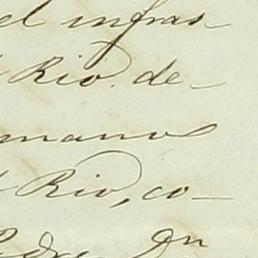 el infras
Rio. de-
manos
Rio, co-
Pedro In